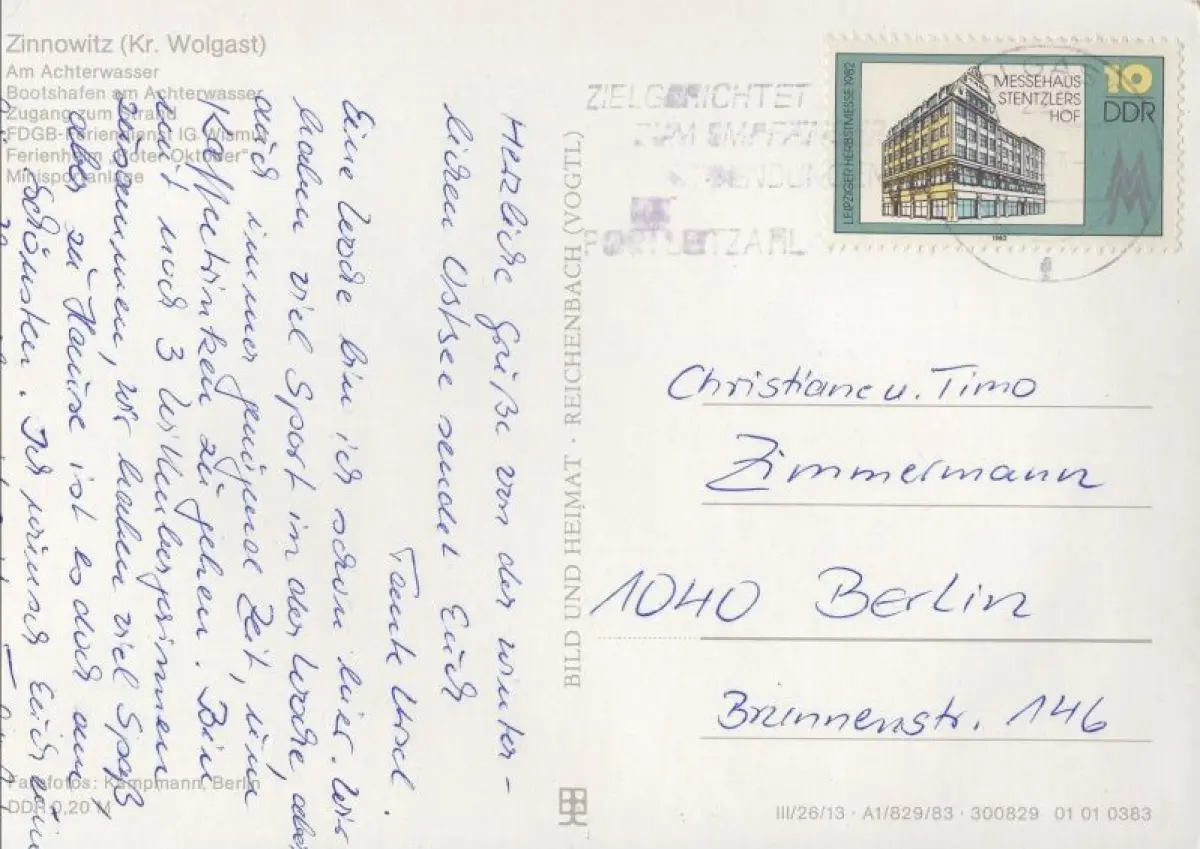 Zinnowitz (Kr. Wolgast)
Am Achterwasser
Bootshafen am Achterwasser
Zugang zum Strand
FDGB-Feriendienst IG Wismut
Ferienheim „Roter Oktober"
Minisportanlage
Herzliche Grüße von der winter-
lichen Ostsee sendet Euch
Tante Ursel.
Eine Woche bin ich schon hier. Wir
haben viel Sport in der Woche, aber
auch immer genügend Zeit, um
Kaffeetrinken zu gehen. Bin
mit noch 3 Wittenbergerinnen
zusammen, wir haben viel Spaß
aber zu Hause ist es doch am
Schönsten. Ich wünsch Euch
Farbfotos: Kampmann, Berlin
DDR 0,20 M
BILD UND HEIMAT · REICHENBACH (VOGTL)
ZIELGERICHTET
ZUM EMPFÄNGER
SENDUNGEN
POSTLEITZAHL
LEIPZIGER HERBSTMESSE 1982
MESSEHAUS
STENTZLERS
HOF
10
DDR
1982
Christiane u. Timo
Zimmermann
1040 Berlin
Brunnenstr. 146
III/26/13 · A1/829/83 · 300829 01 01 0383